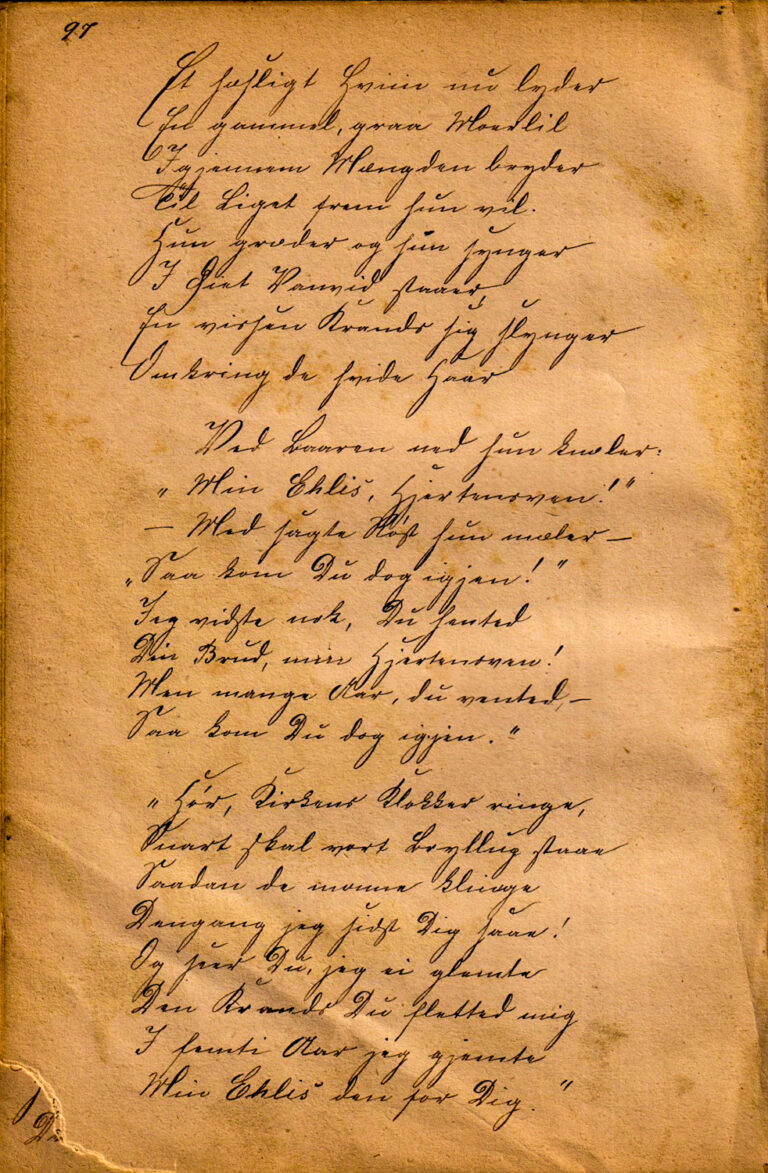 97
Et hæsligt Hviin nu lyder
En gammel, graa Moerlil
Igjennem Mængden bryder
Til Liget frem hun vil.
Hun græder og hun synger
I Øiet Vanvid staaer,
En vissen Krands sig slynger
Omkring de hvide Haar
Ved Baaren ned hun knæler:
„Min Ehlis, Hjertensven!"
– Med sagte Røst hun mæler –
„Saa kom Du dog igjen!"
Jeg vidste nok, Du hented
Din Brud, min Hjertensven!
Men mange Aar, du vented, –
Saa kom Du dog igjen."
„Hør, Kirkens Klokker ringe,
Snart skal vort Bryllup staae
Saadan de monne klinge
Dengang jeg sidst Dig saae!
Og seer Du, jeg ei glemte
Den Krands Du fletted mig
I femti Aar jeg gjemte
Min Ehlis den for Dig."